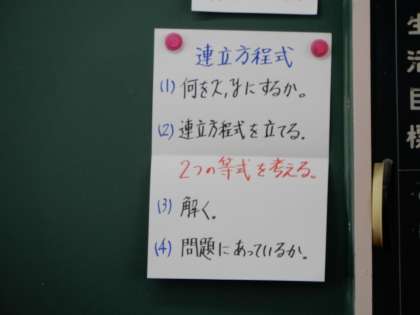 連立方程式
(1) 何をx,yにするか。
(2) 連立方程式を立てる。
2つの等式を考える。
(3) 解く。
(4) 問題にあっているか。
生活目標